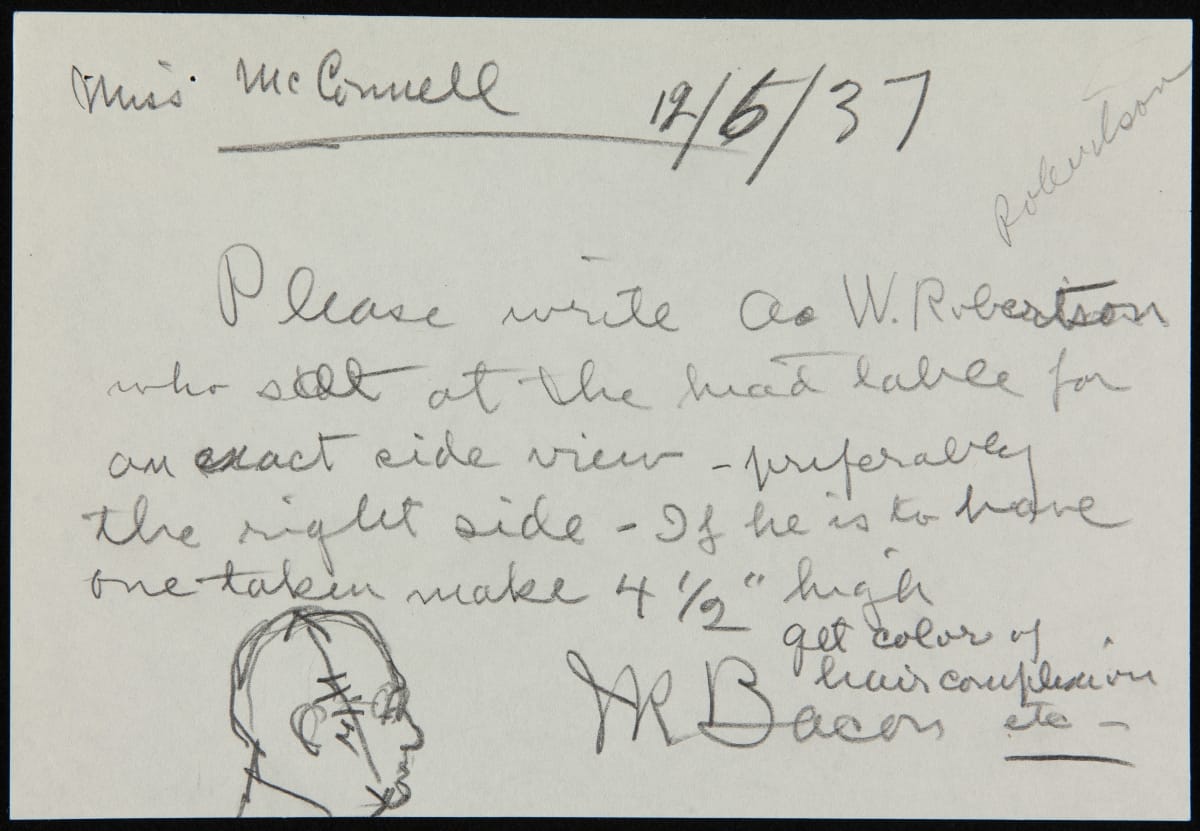 Miss McConnell 12/5/37
Robertson
Please write A. W. Robertson
who sat at the head table for
an exact side view - preferably
the right side - If he is to have
one taken make 4 1/2" high
get color of
hair complexion
etc -
Bacon
4 1/2